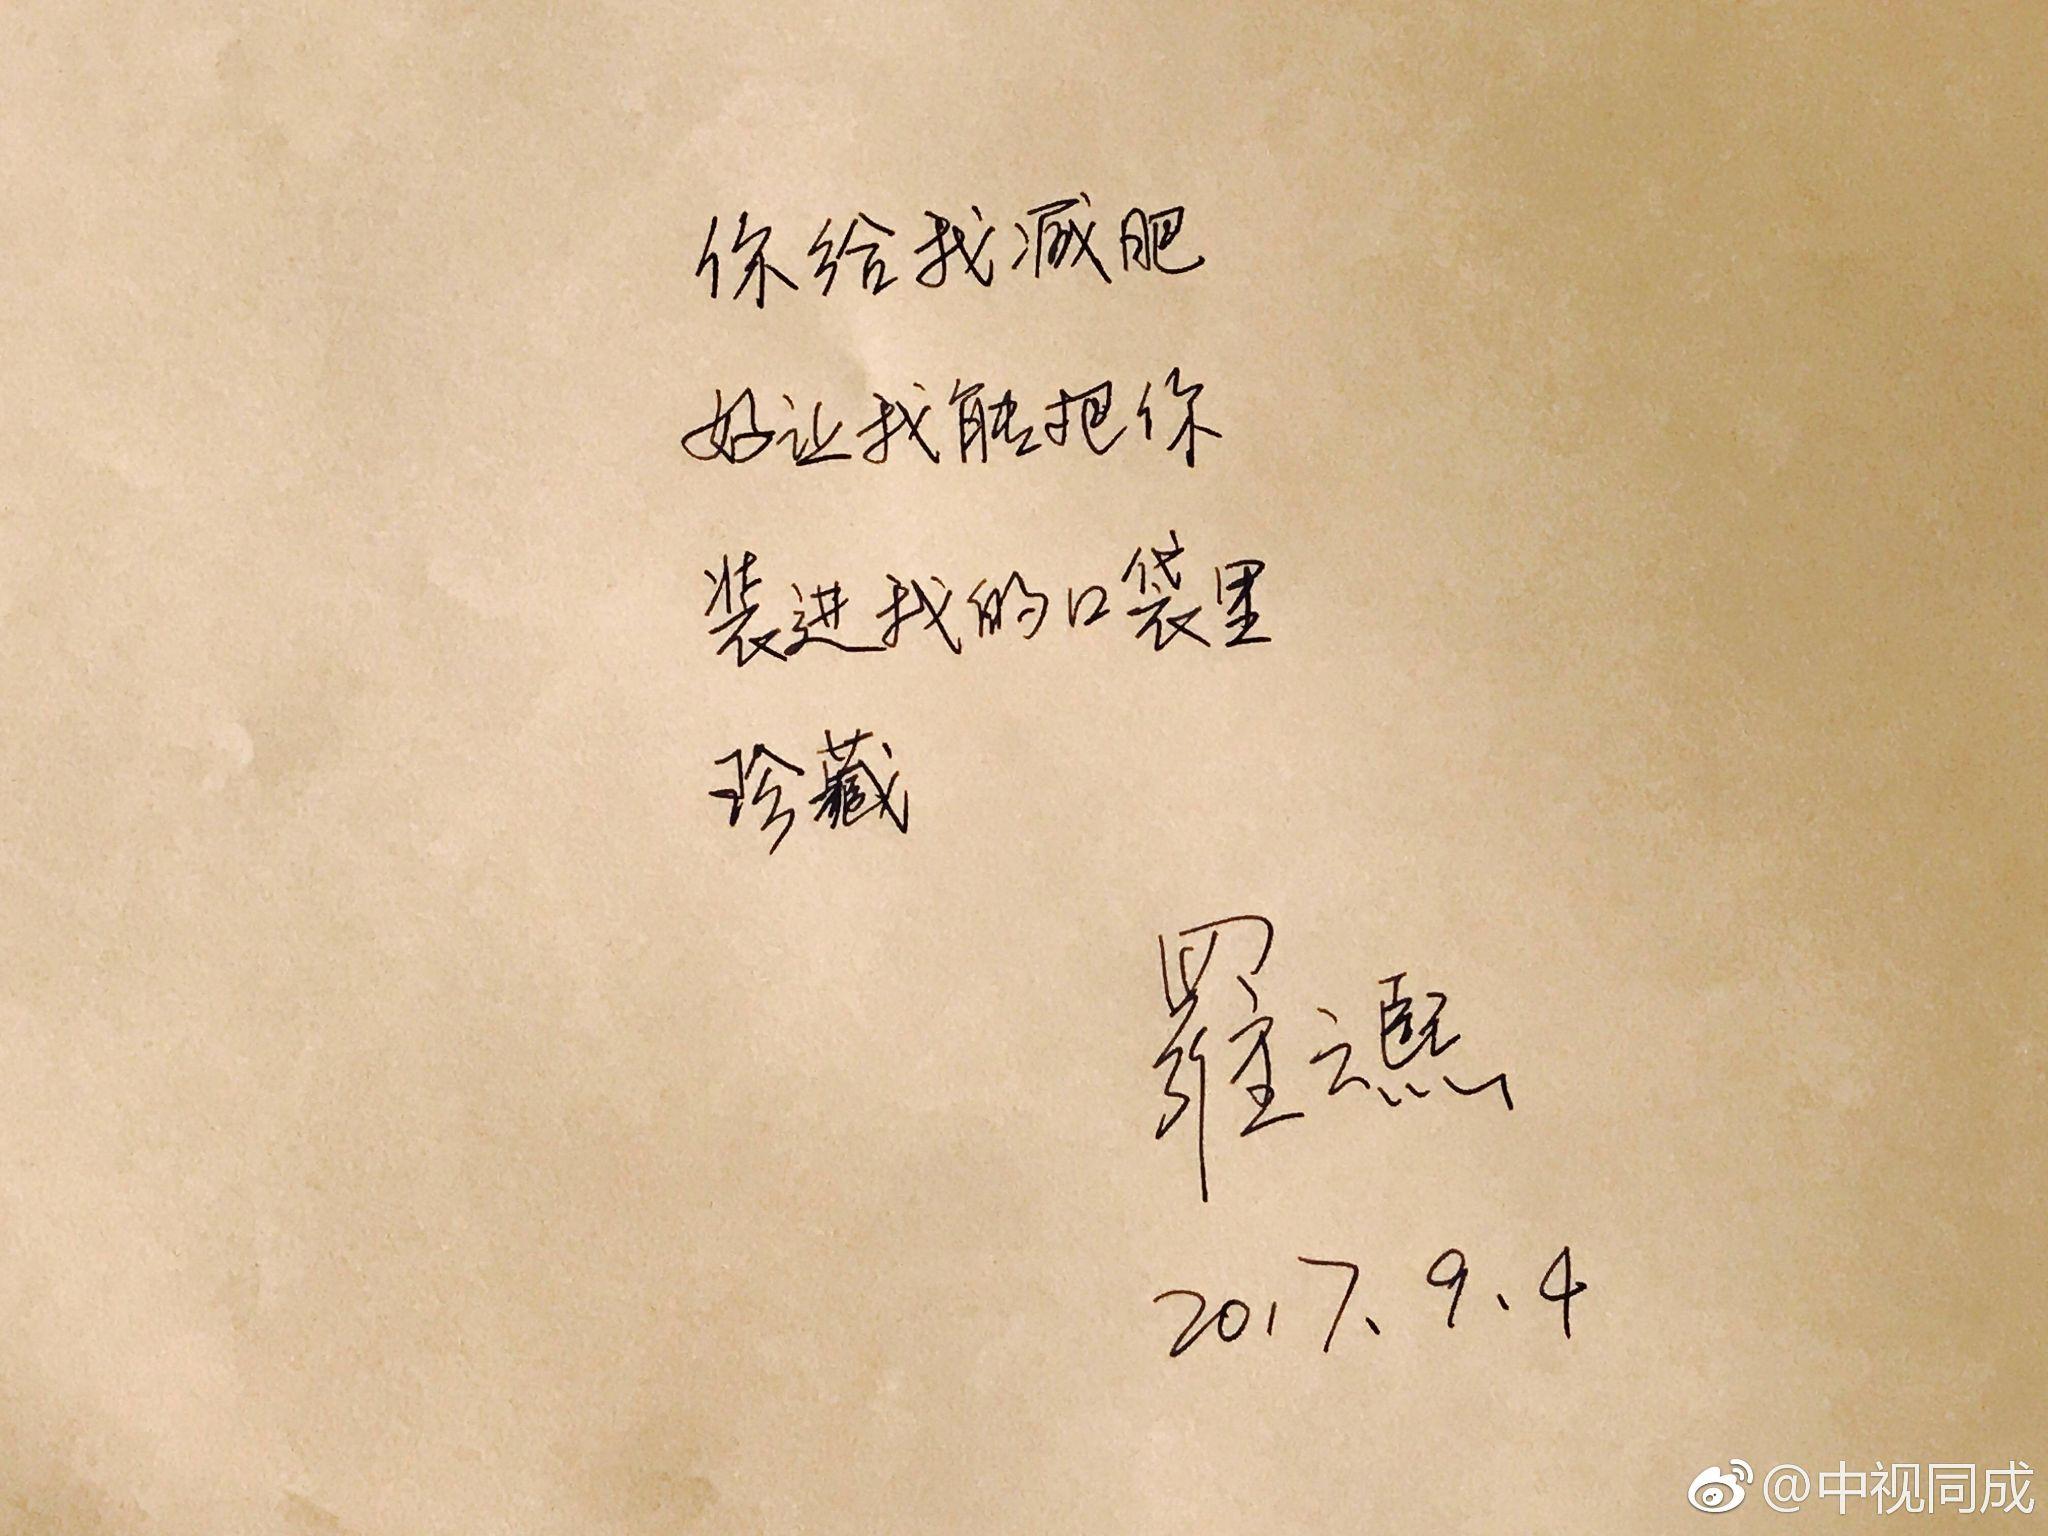 你给我减肥
好让我能把你
装进我的口袋里
珍藏
羅云熙
2017.9.4
@中视同成